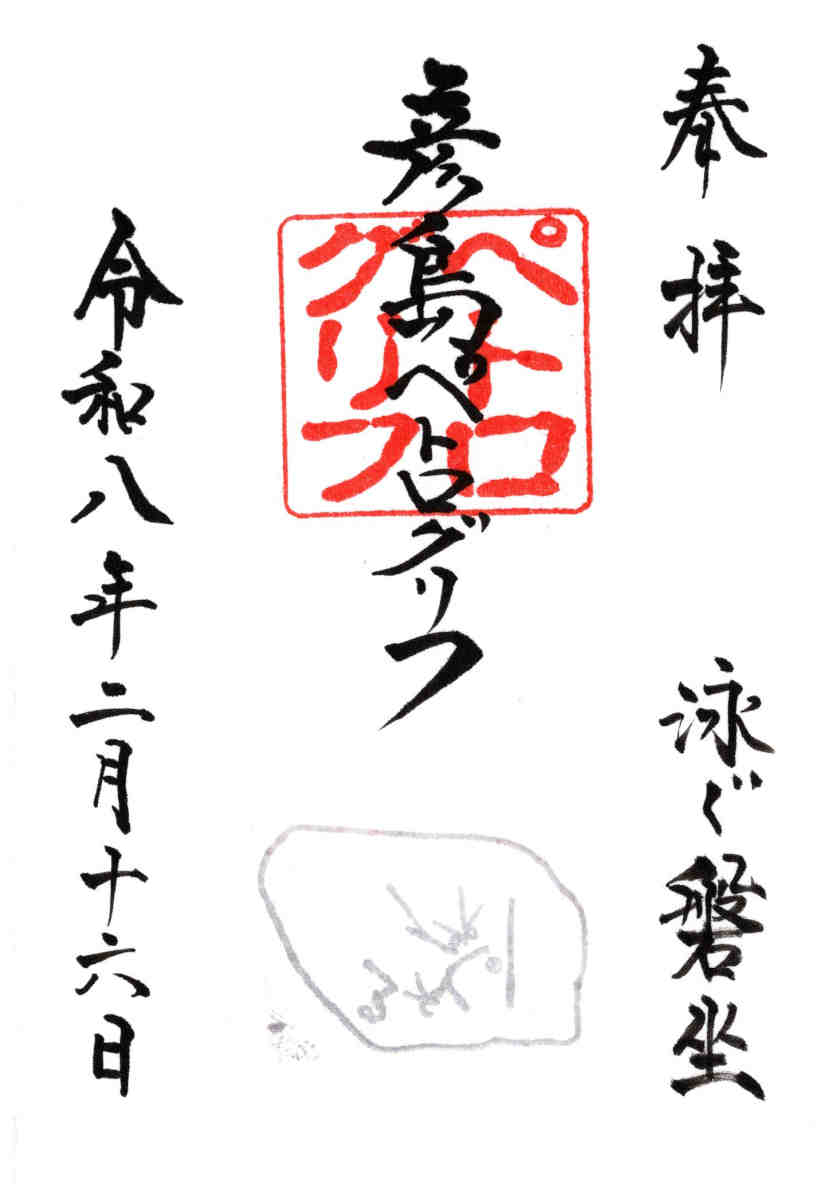 奉拝
泳ぐ磐坐
彦島のペトログリフ
ペトロ
グリフ
令和八年二月十六日